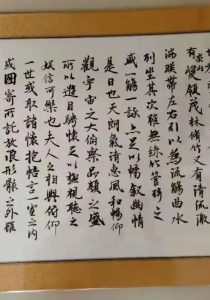 有崇山峻領茂林脩竹又有清流激
湍暎帶左右引以為流觴曲水
列坐其次雖無絲竹管弦之
盛一觴一詠亦足以暢敘幽情
是日也天朗氣清惠風和暢仰
觀宇宙之大俯察品類之盛
所以遊目騁懷足以極視聽之
娛信可樂也夫人之相與俯仰
一世或取諸懷抱悟言一室之內
或因寄所託放浪形骸之外雖